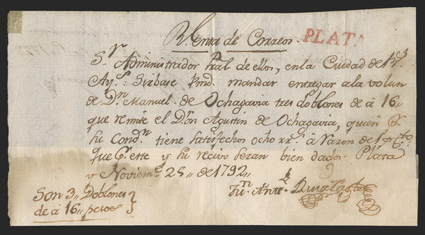 Rl. Renta de Correos. PLATA
Sr. Administrador Pral de ellos, en la Ciudad de
Ays. Sirbase Vmd. mandar entregar a la volun
de Dn. Manuel de Ochagavia tres doblones de a 16
que remite el Dn. Agustin de Ochagavia, quien
su Condn. tiene satisfechos ocho rs. a razon de
que este y su recivo seran bien dados. Plata
y Noviemb. 25 de 1792
Son 3 Doblones
de a 16 pesos